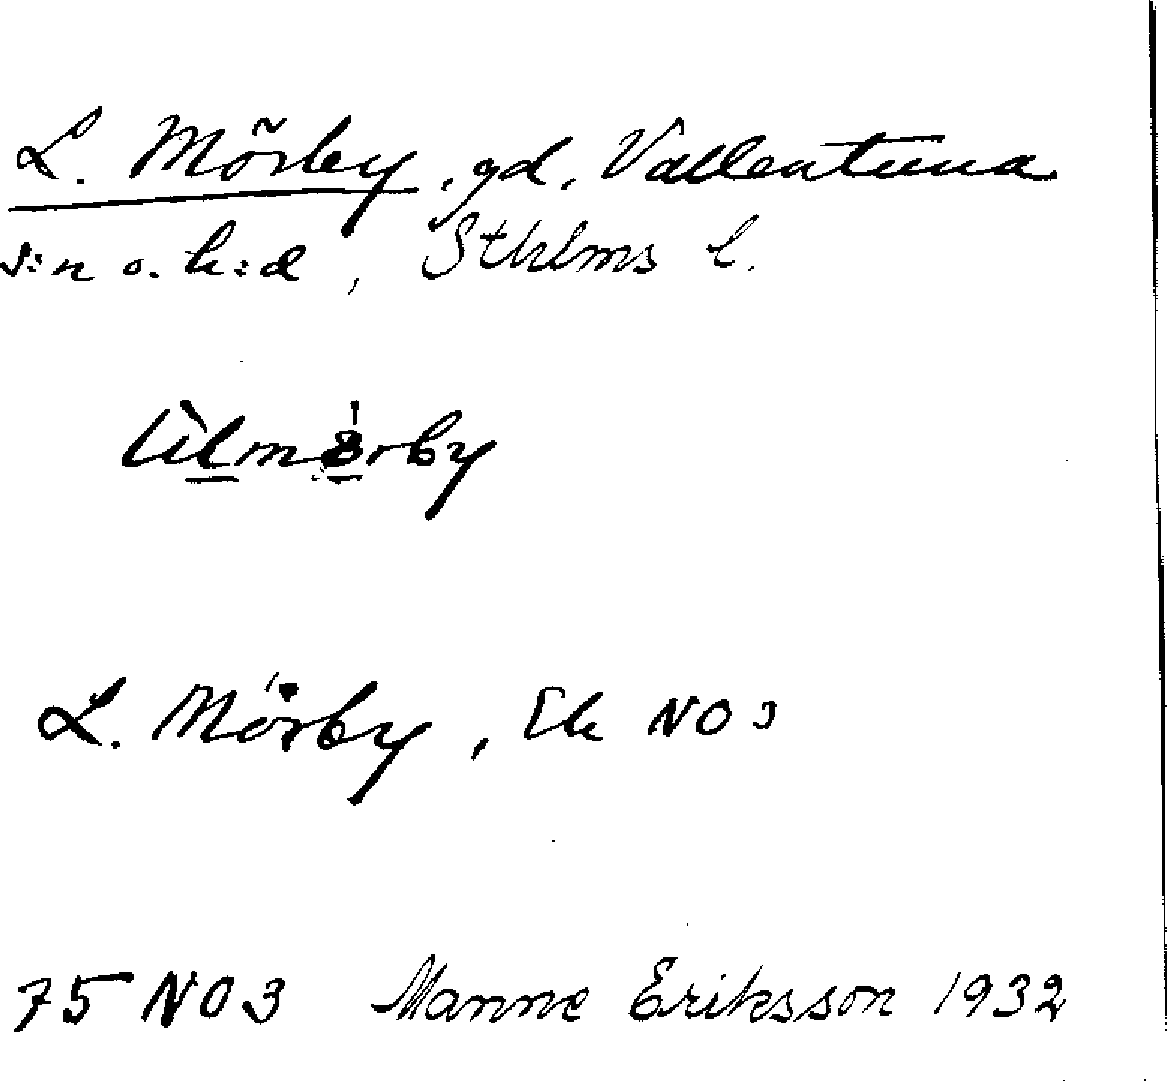 L. Mörby, gd, Vallentuna
s:n o. h:d, Sthlms l.
L. Mörby, Ek NO 3
75 NO 3 Manne Eriksson 1932